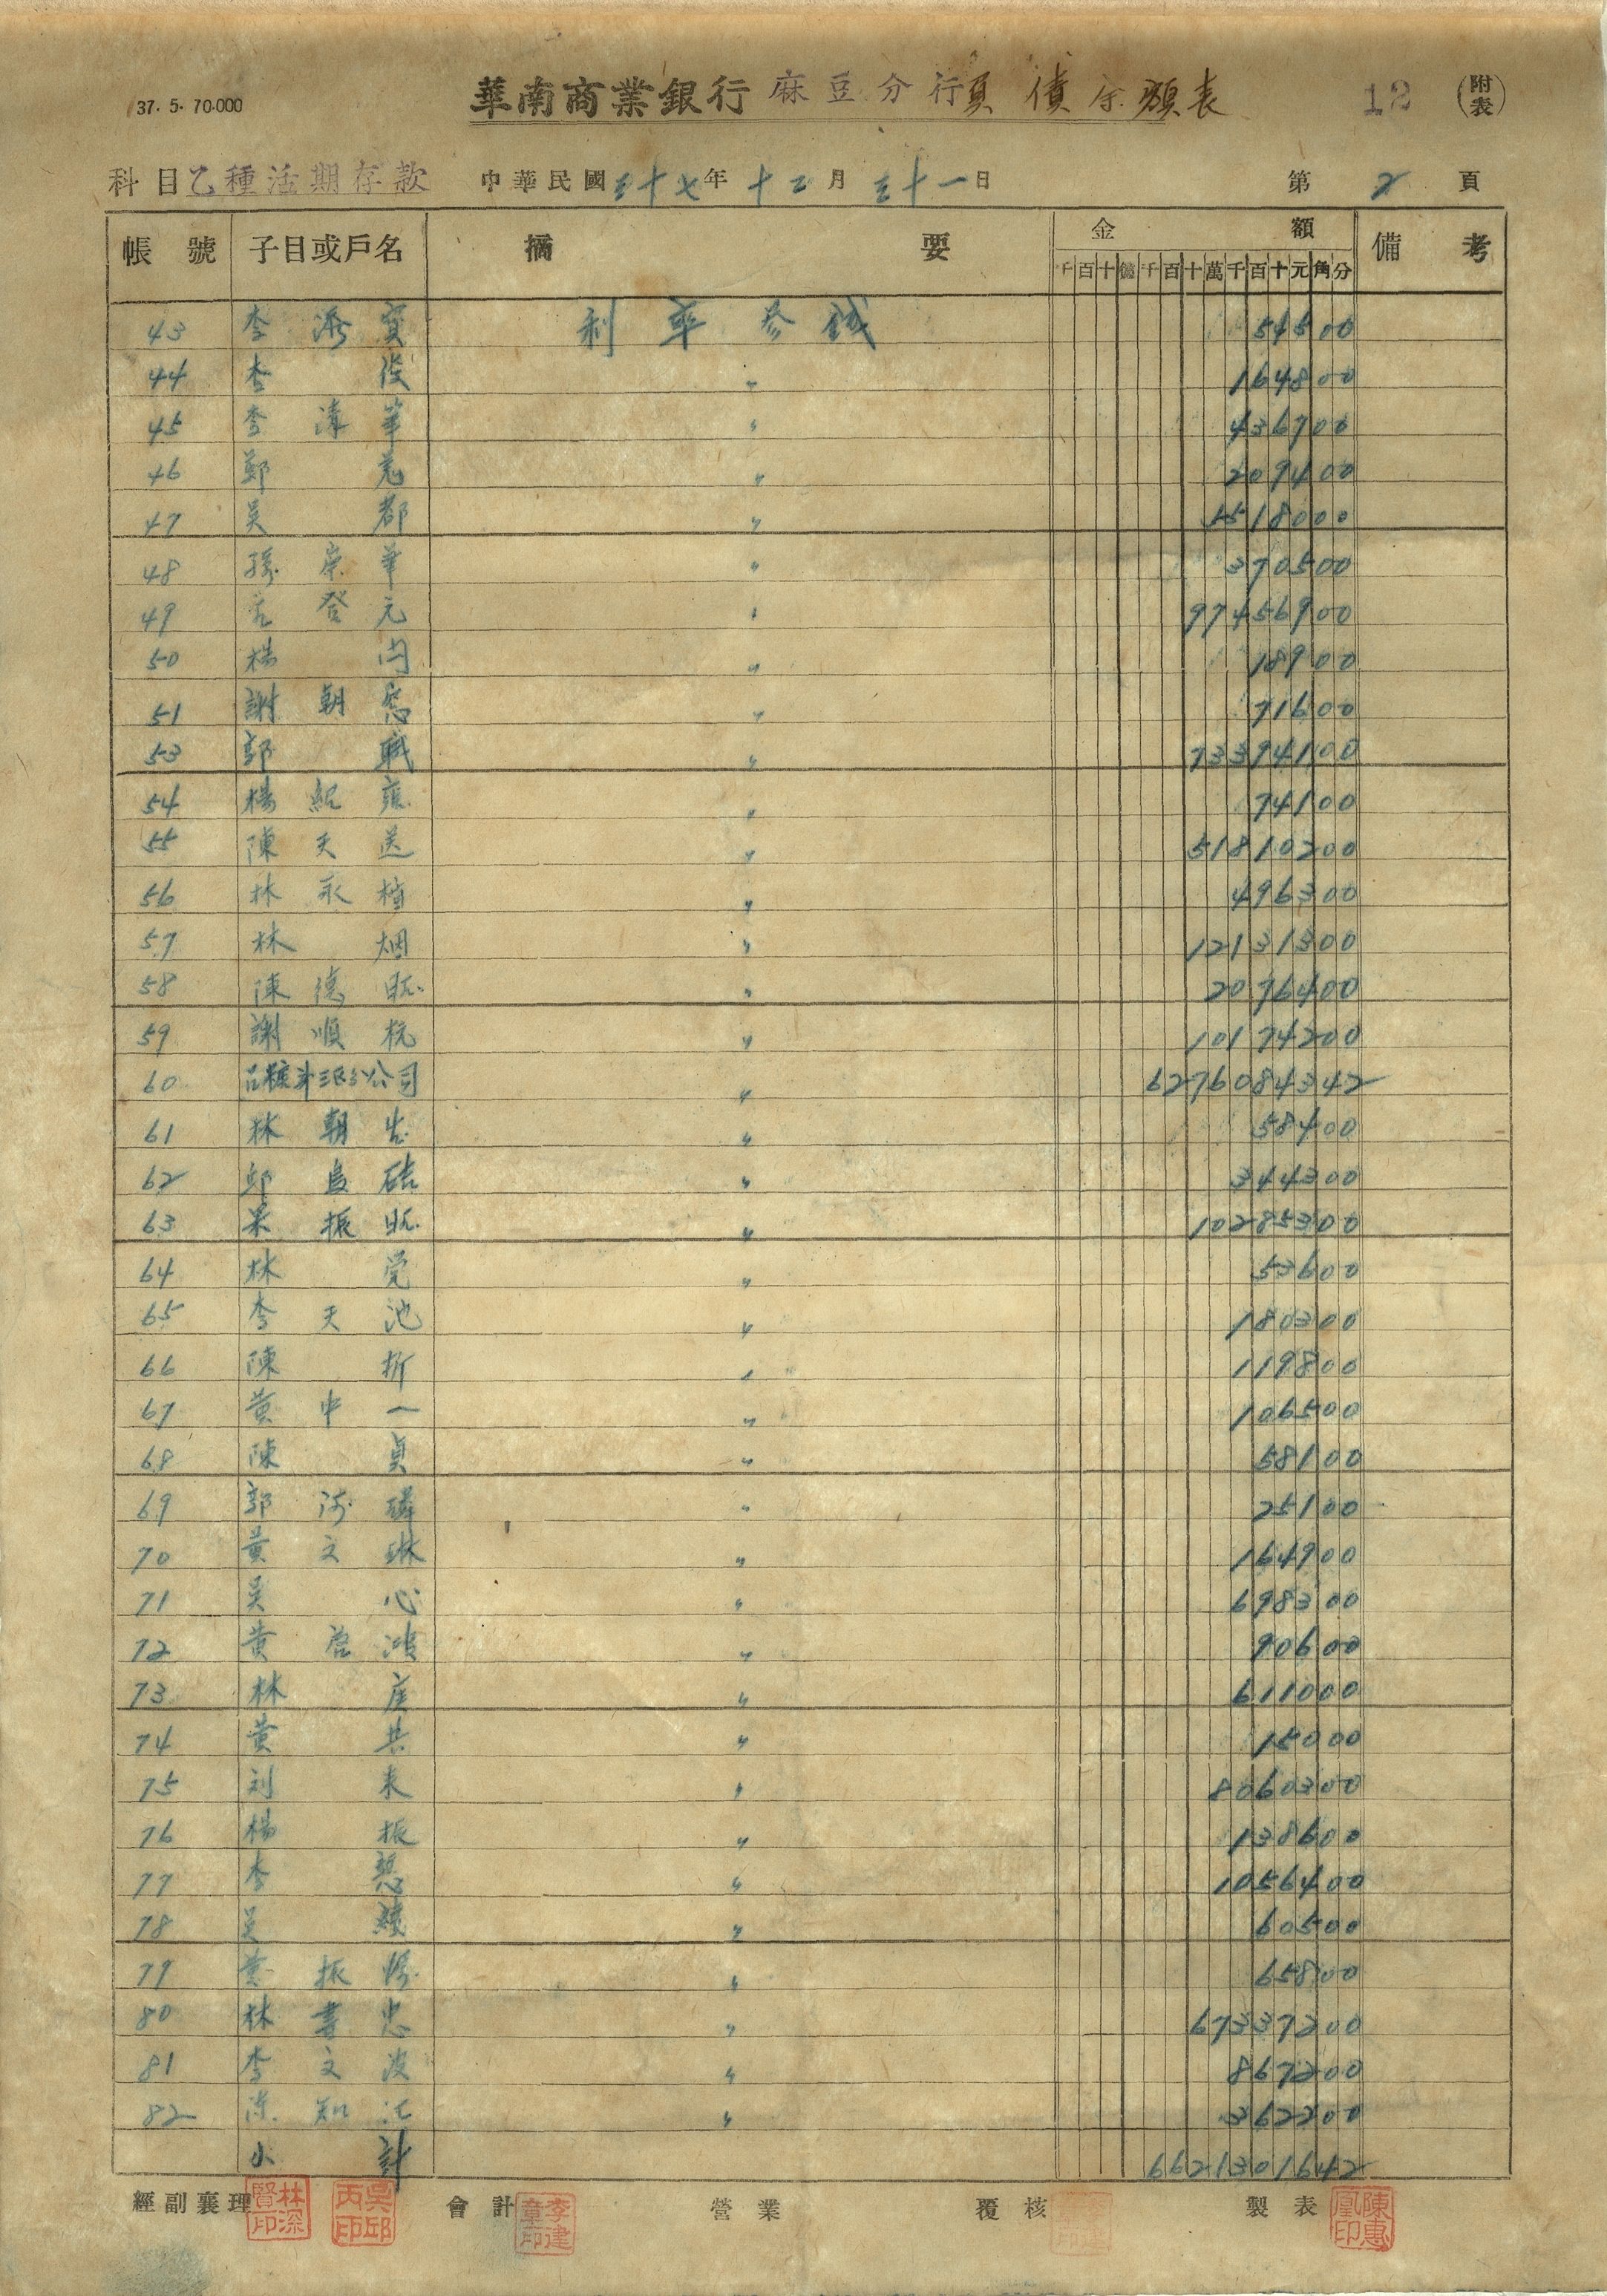 37. 5. 70.000 華南商業銀行 麻豆分行 負債余額表 12 (附表)
科目 乙種活期存款 中華民國三十七年十二月三十一日 第2頁
帳號 子目或戶名 摘要 金額 備考
千百十億千百十萬千百十元角分
43 李 寶 利率參錢 54500
44 李 後 〃 164800
45 李 華 〃 436700
46 鄭 〃 209400
47 吳 都 〃 1518000
48 孫 華 〃 370500
49 登元 〃 97456900
50 楊 〃 18900
51 謝朝 〃 71600
53 郭 職 〃 73394100
54 楊紀 〃 74100
55 陳天送 〃 51810200
56 林永 〃 496300
57 林 烟 〃 12131300
58 陳德旺 〃 2076400
59 謝順杭 〃 10174200
60 公司 〃 6276084342
61 林朝 〃 58400
62 邱 〃 344300
63 振旺 〃 10285300
64 林 党 〃 53600
65 李天池 〃 180300
66 陳 折 〃 119800
67 黃中一 〃 106500
68 陳 貞 〃 58100
69 郭 〃 25100
70 黃文琳 〃 164900
71 吳 心 〃 698300
72 黃 鴻 〃 90600
73 林 〃 611000
74 黃 共 〃 15000
75 刘 来 〃 8060300
76 楊 振 〃 138600
77 李 〃 1056400
78 吳 〃 60500
79 黃振 〃 65800
80 林書忠 〃 67337200
81 李文波 〃 867200
82 陳知江 〃 362200
小計 6621301642
經副襄理 林深賢印 吳邱丙印 會計 李建章印 營業 覆核 製表 陳惠凰印